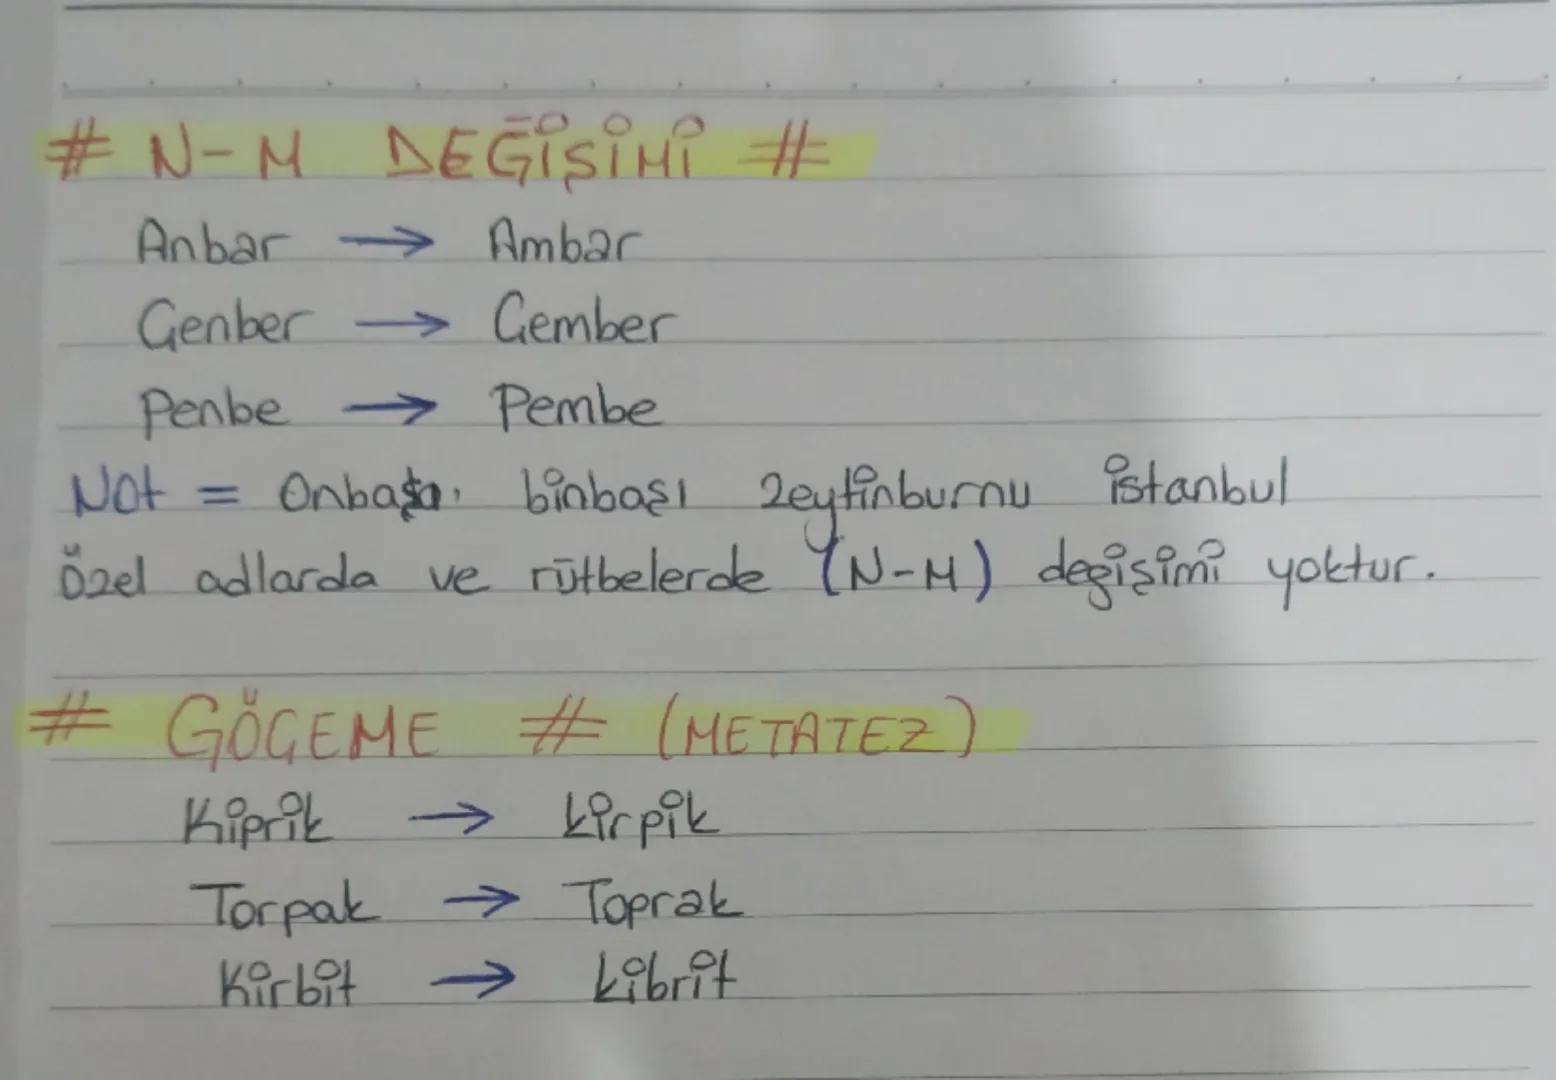 # N-M DEĞİŞİMİ #
Anbar → Ambar
Çenber → Çember
Penbe → Pembe
Not = Onbaşı, binbaşı Zeytinburnu istanbul
Özel adlarda ve rütbelerde (N-M) değişimi yoktur.
# GÖÇEME # (METATEZ)
Kiprik → kirpik
Torpak → Toprak
Kirbit → kibrit